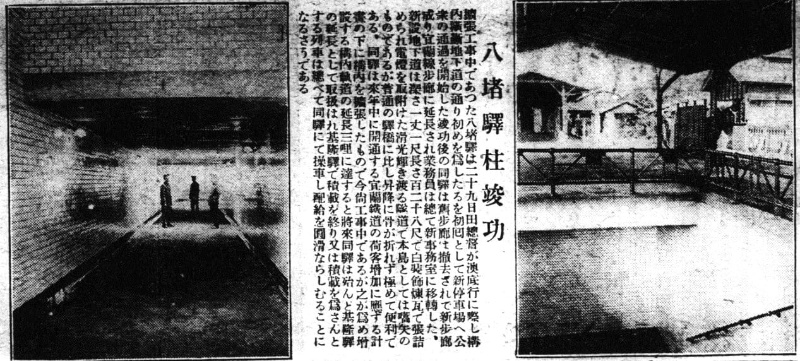 八堵驛柱竣功
擴張工事中であつた八堵驛は二十九日田總督が澳底行に際し構
内新設地下道の通り初めを爲したるを初回として新停車場へ公
衆の通過を開始した竣功後の同驛は舊步廊は撤去されて新步廊
成り宜蘭線步廊に延長され業務員は總て新事務室に移轉した、
新設地下道は深さ一丈二尺長さ百二十八尺で白裝飾煉瓦で張詰
められ電燈を取附けた滑光輝き渡る隧道で本島としては嚆矢の
ものであるが普通の驛橋に比し昇降に骨が折れず極めて便利で
ある。同驛は來年中に開通する宜蘭鐵道の荷客增加に應ずる計
畫の下に構內を擴張したもので今尙工事中であるが之が爲め增
設する構內軌道の延長三哩に達すると將來同驛は殆んと基隆驛
の延長として取扱はれ基隆驛で積載を終り又は積載を爲さんと
する列車は總べて同驛にて操車し配給を圓滑ならしむることに
なるさうである